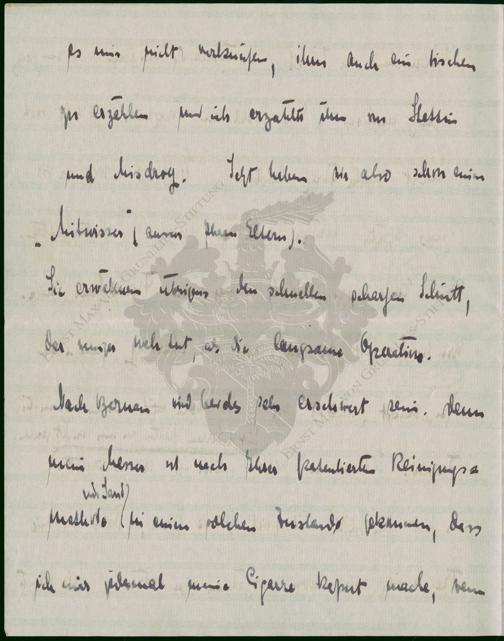 es mir nicht verkneifen, ihm auch ein bischen
zu erzählen und ich erzählte ihm von Stettin
und Misdroy. Jetzt haben wir also schon einen
„Mitwisser“ (ausser Ihren Eltern).
Sie erwähnen übrigens den schnellen scharfen Schnitt,
der weniger weh tut, als die langsame Operation.
Nach wird beides sehr erschwert sein. denn
mein Messer ist nach Ihrer patentierten Reinigungs=
mit Sand
methode (in einen solchen Zustande gekommen, dass
ich mir jedesmal meine Cigarre kaput mache, wenn
ERNST MAX VON GRUNELIUS-STIFTUNG
ERNST MAX VON GRUNELIUS-STIFTUNG